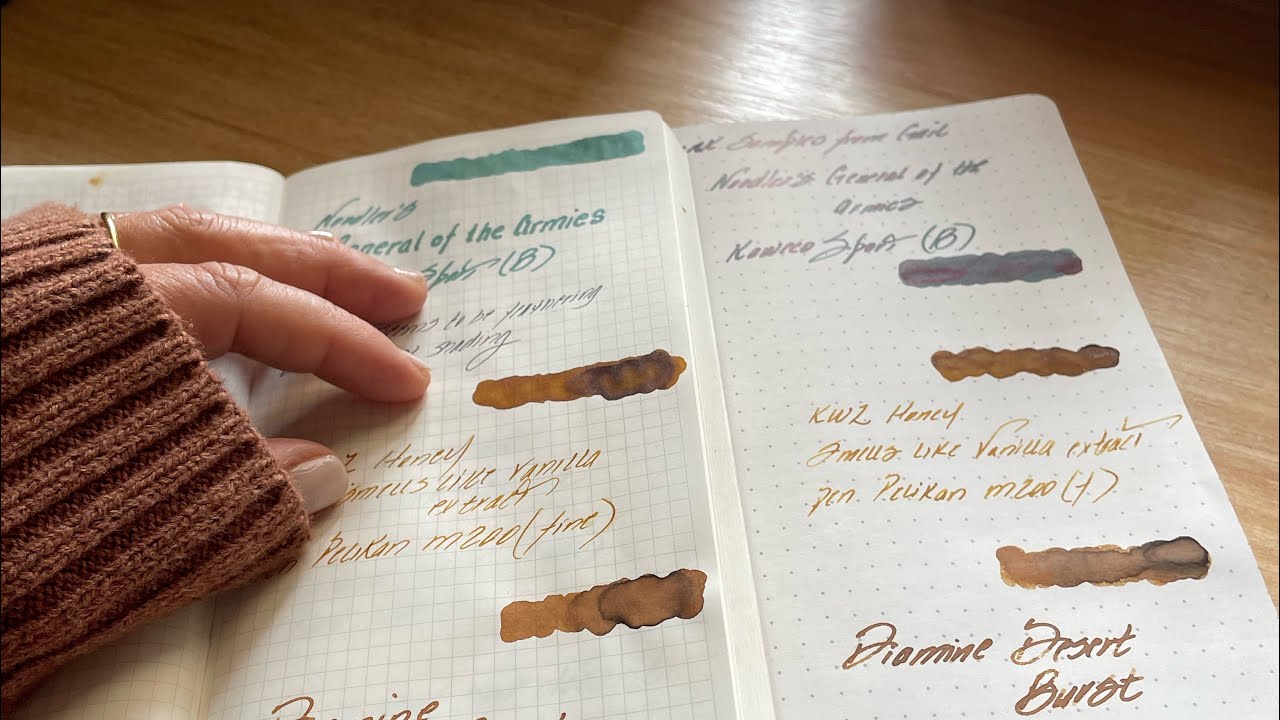 Noodler's
General of the Armies
Sport (B)
seems to be feathering
shading
Honey
smells like Vanilla
extract
Pelikan m200 (fine)
Diamine
Ink Samples from Gail
Noodler's General of the
Armies
Kaweco Sport (B)
KWZ Honey
Smells like Vanilla extract
pen. Pelikan m200 (f)
Diamine Desert
Burst